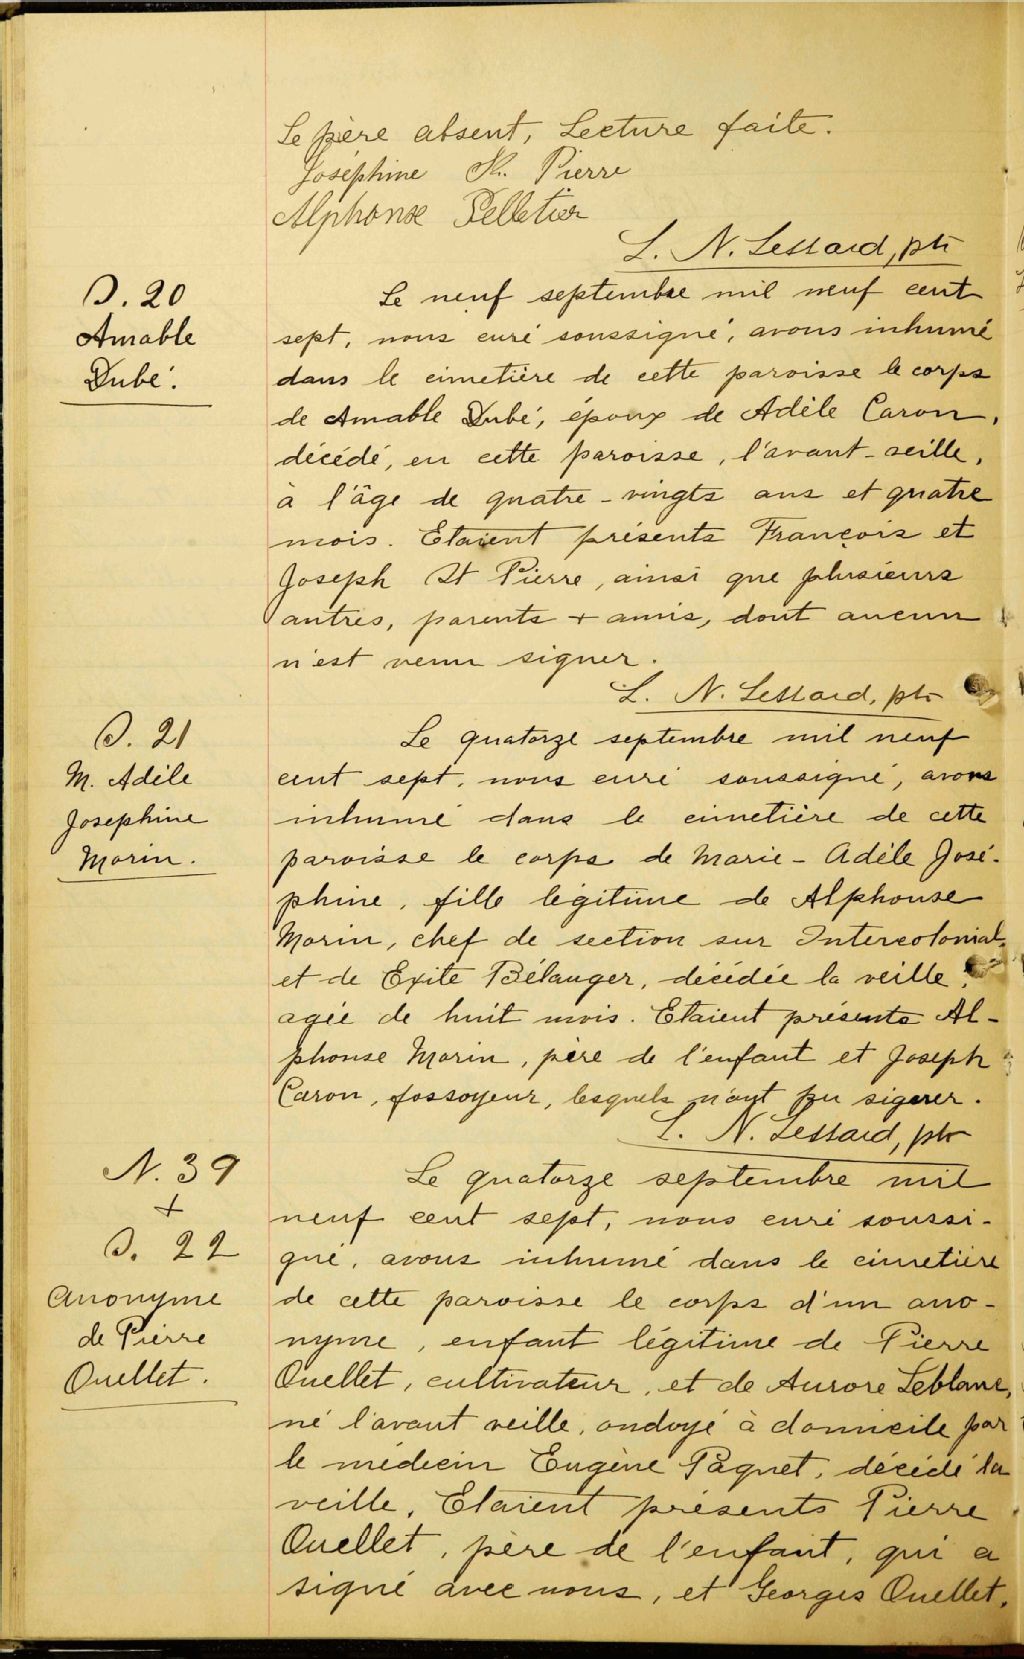 Le père absent, Lecture faite.
Joséphine St. Pierre
Alphonse Pelletier
L. N. Lessard, ptr
S. 20
Amable
Dubé.
Le neuf septembre mil neuf cent
sept, nous curé soussigné, avons inhumé
dans le cimetière de cette paroisse le corps
de Amable Dubé, époux de Adèle Caron,
décédé, en cette paroisse, l'avant-veille,
à l'âge de quatre-vingts ans et quatre
mois. Etaient présents François et
Joseph St Pierre, ainsi que plusieurs
autres, parents + amis, dont aucun
n'est venu signer.
L. N. Lessard, ptr
S. 21
M. Adèle
Josephine
Morin.
Le quatorze septembre mil neuf
cent sept, nous curé soussigné, avons
inhumé dans le cimetière de cette
paroisse le corps de Marie-Adèle José-
phine, fille légitime de Alphonse
Morin, chef de section sur Intercolonial,
et de Exite Bélanger, décédée la veille,
agée de huit mois. Etaient présents Al-
phonse Morin, père de l'enfant et Joseph
Caron, fossoyeur, lesquels n'ont pu signer.
L. N. Lessard, ptr
N. 39
+
S. 22
Anonyme
de Pierre
Ouellet.
Le quatorze septembre mil
neuf cent sept, nous curé soussi-
gné, avons inhumé dans le cimetière
de cette paroisse le corps d'un ano-
nyme, enfant légitime de Pierre
Ouellet, cultivateur, et de Aurore Leblanc,
né l'avant veille, ondoyé à domicile par
le médecin Eugène Paquet, décédé la
veille. Etaient présents Pierre
Ouellet, père de l'enfant, qui a
signé avec nous, et Georges Ouellet,